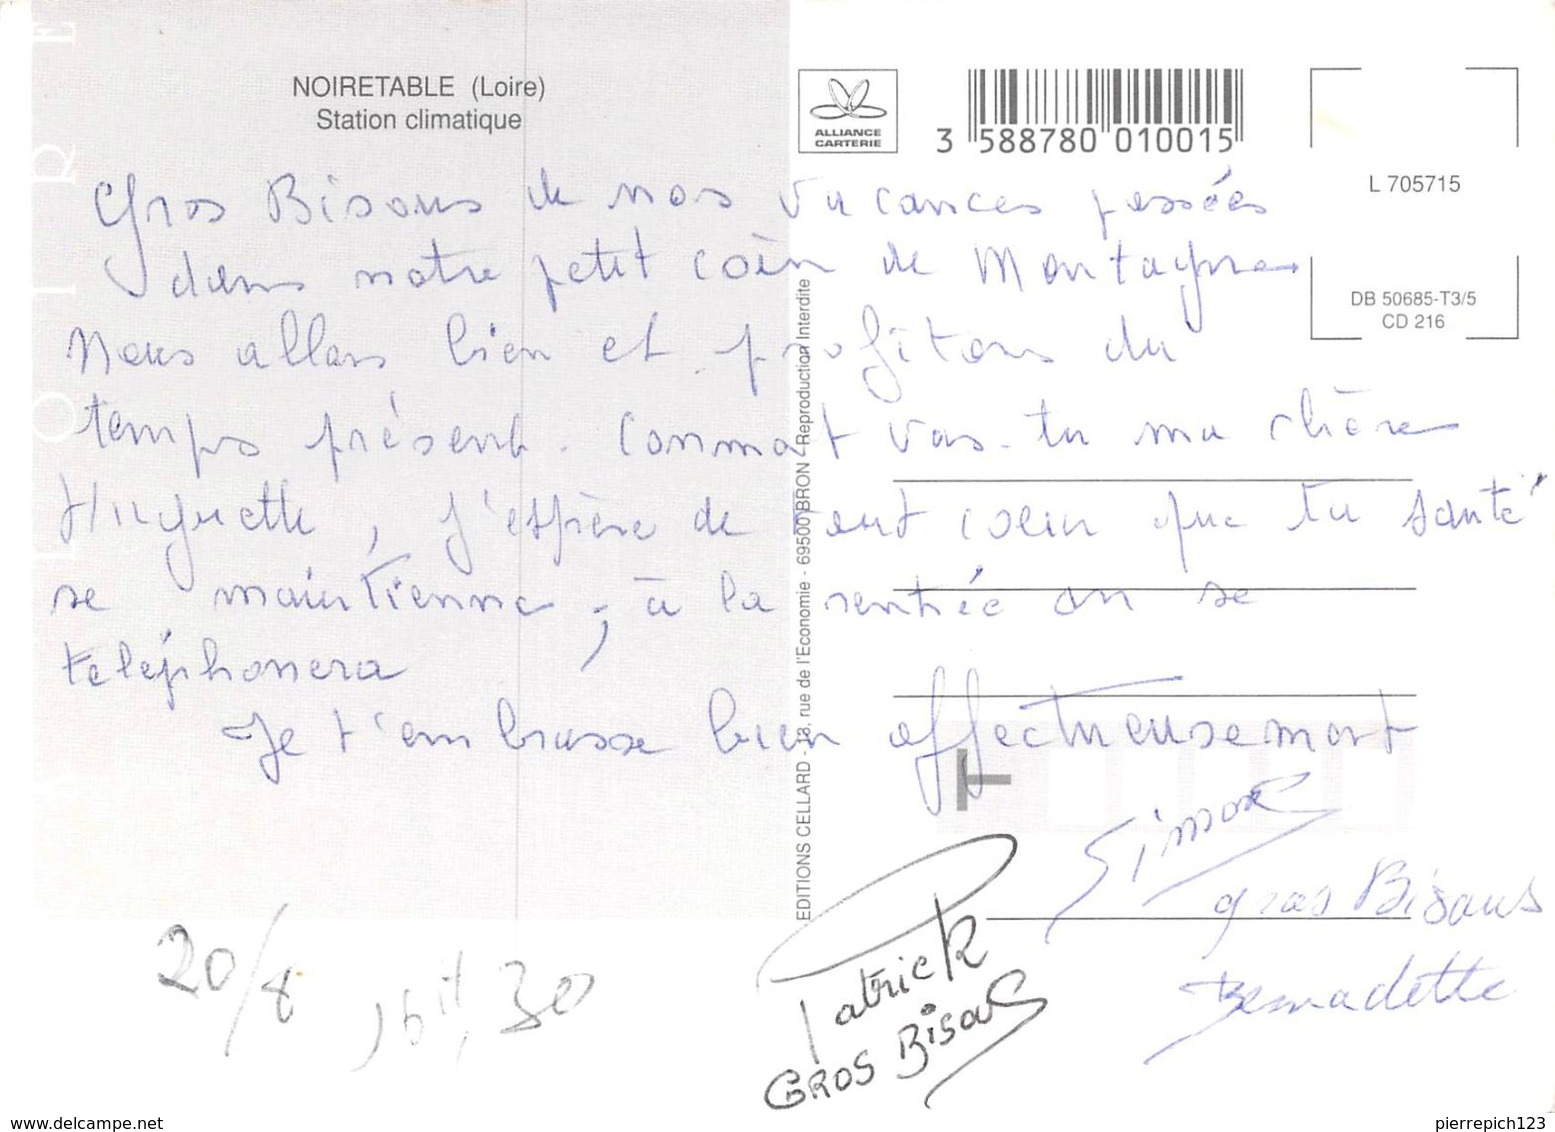 NOIRETABLE (Loire)
Station climatique
ALLIANCE
CARTERIE
3 588780 010015
L 705715
DB 50685-T3/5
CD 216
Gros Bisous de nos vacances passées
dans notre petit coin de Montagnes
Nous allons bien et profitons du
temps présent. Comment vas-tu ma chère
Huguette, j'espère de tout coeur que ta santé
se maintienne, à la rentrée on se
telephonera
Je t'embrasse bien affectueusement
EDITIONS CELLARD - 13, rue de l'Economie - 69500 BRON - Reproduction Interdite
T
Simone
gros Bisous
Bernadette
Patrick
GROS BISOUS
20/8 16H,30
LOIRE
pierrepich123